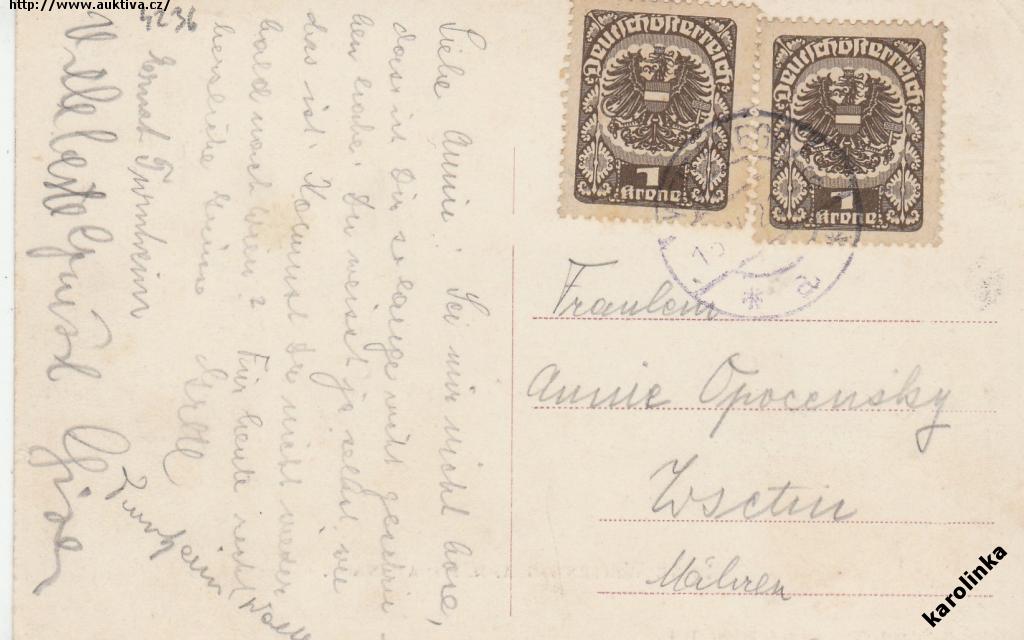 http://www.auktiva.cz/
4236
Liebe Annie! Sei mir nicht böse,
dass ich Dir so lange nicht geschrie-
ben habe. Du weisst ja selbst wie
das ist. Kommst Du nicht wieder
bald nach Wien? Für heute recht
herzliche Grüsse
Gretl
Ernst
Deutschösterreich
1
Krone
Deutschösterreich
1
Krone
Fraulein
Annie Opocensky
Wsetin
Mähren
karolinka